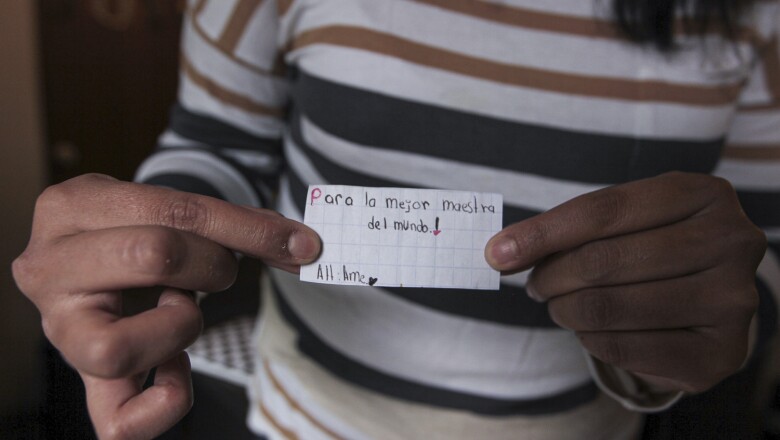 Para la mejor maestra
del mundo.!
Att: Ame